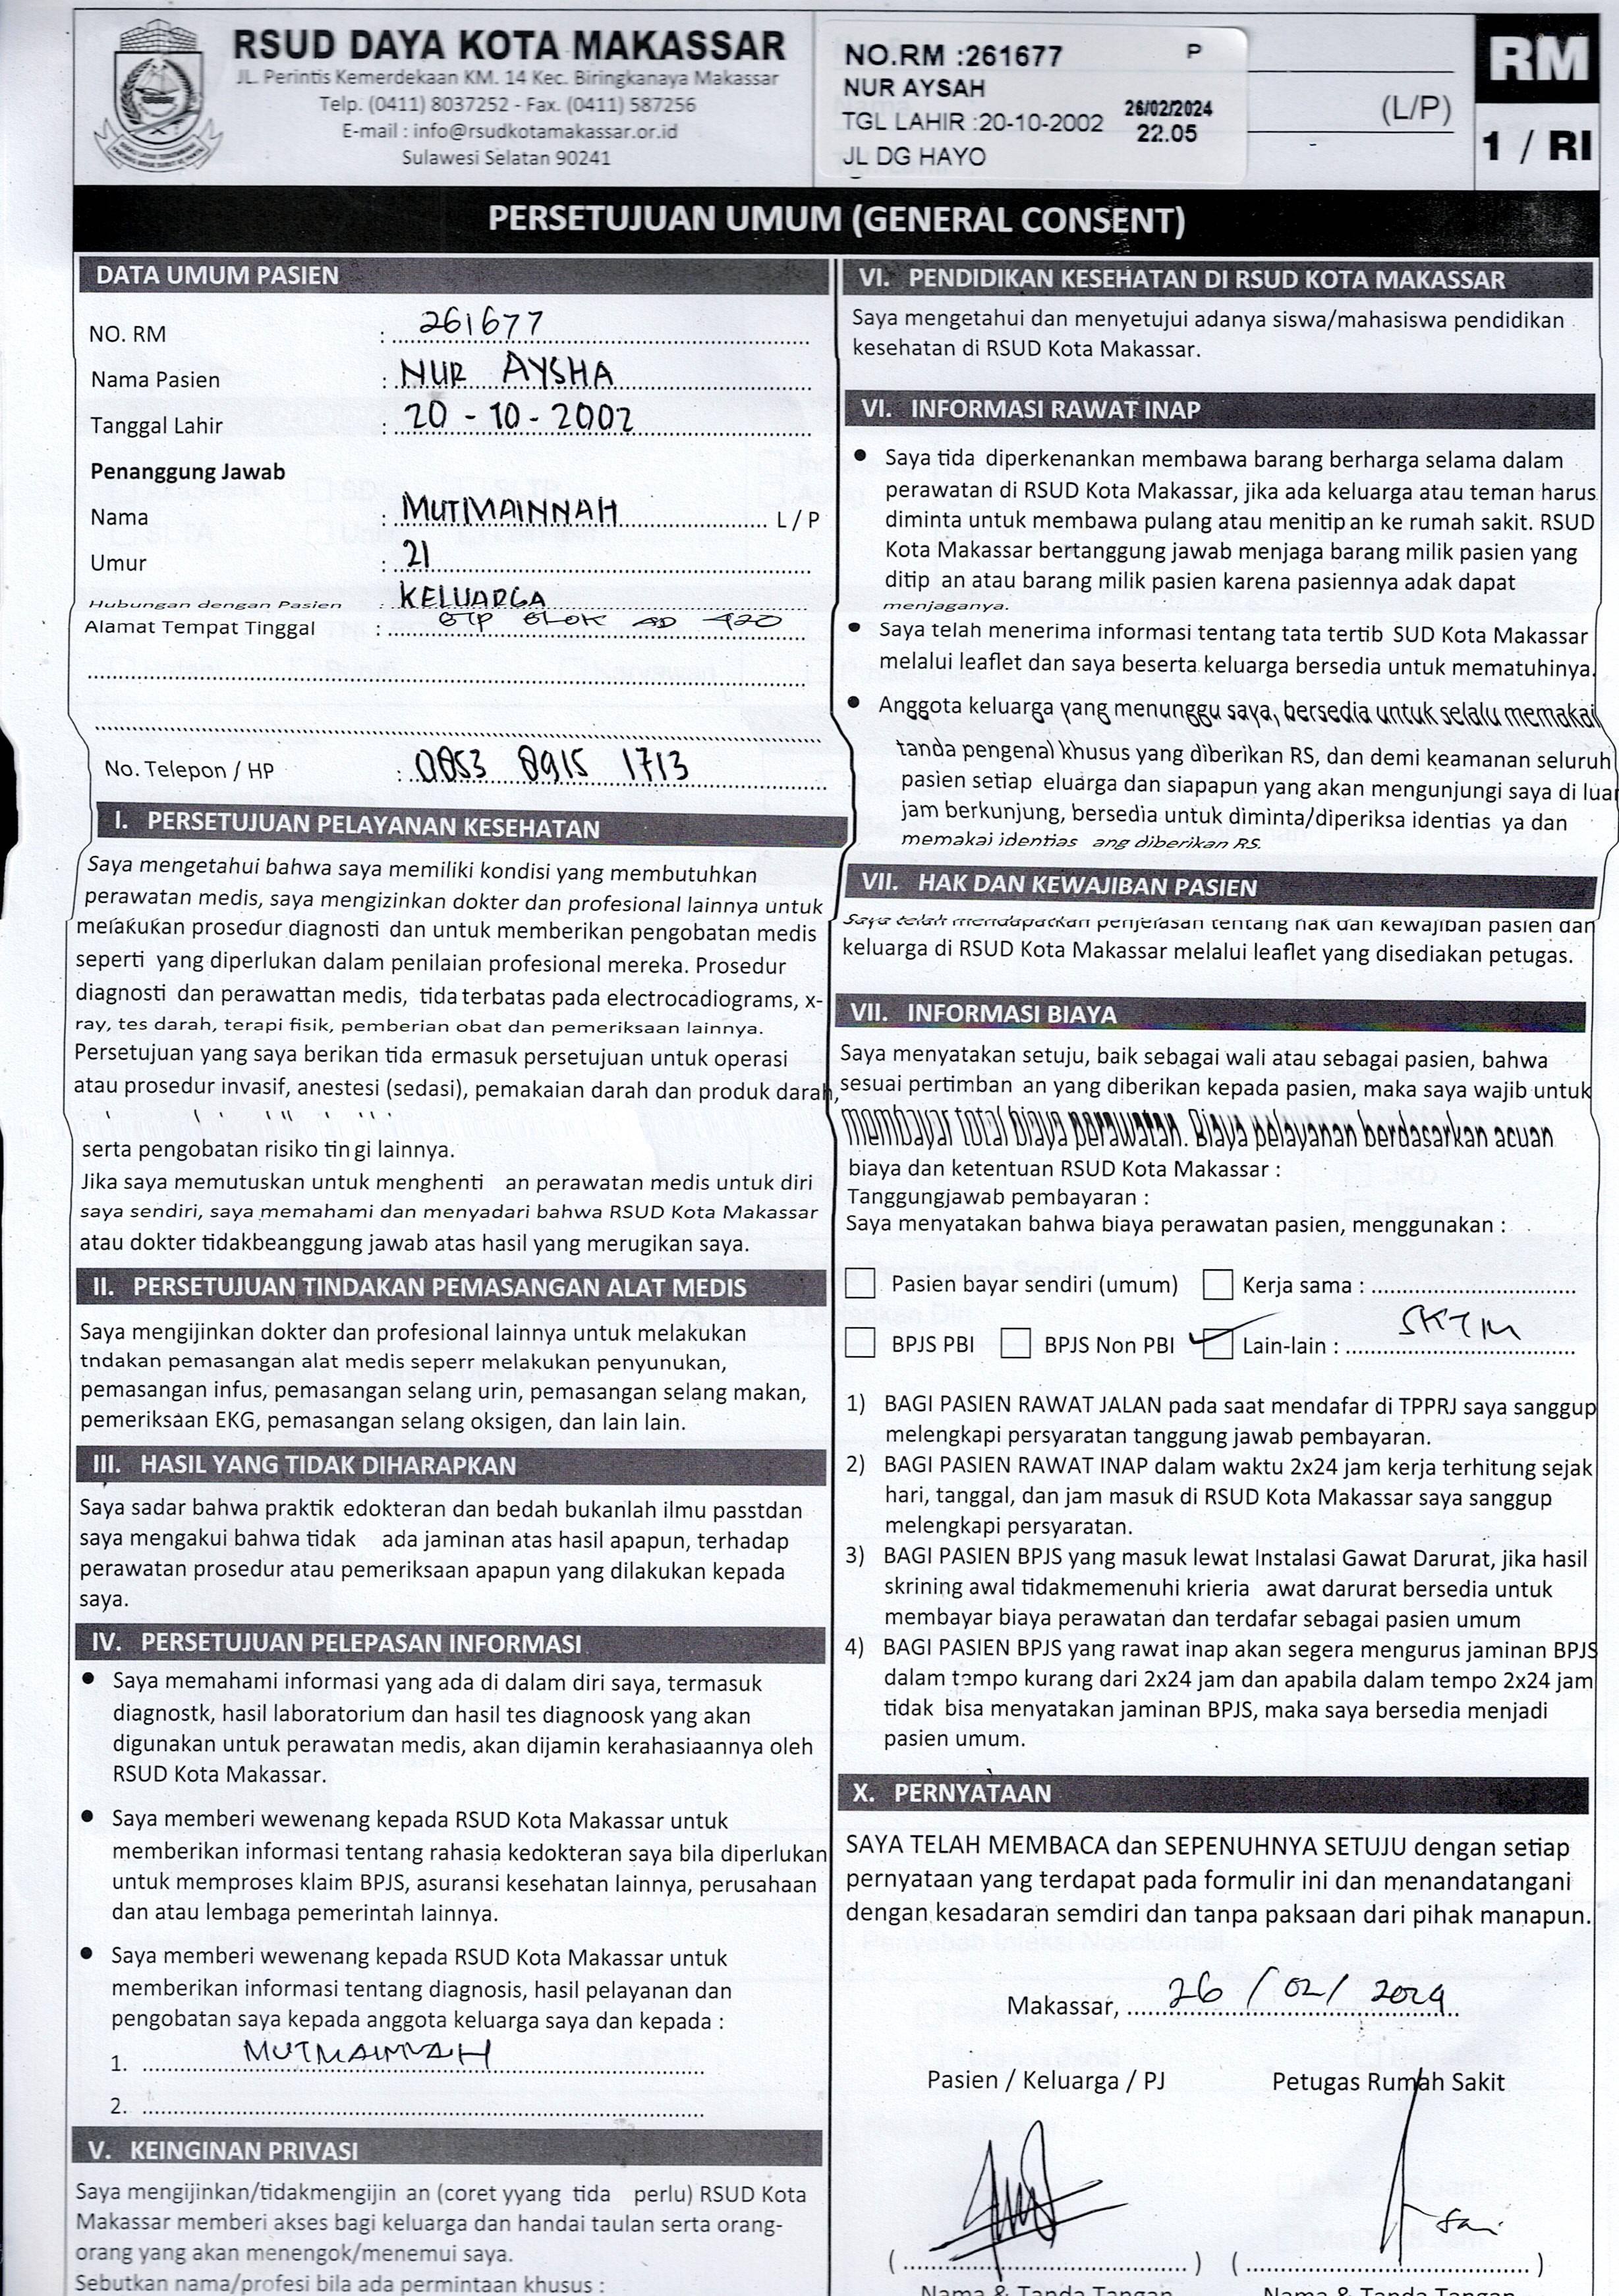 RSUD DAYA KOTA MAKASSAR
JL. Perintis Kemerdekaan KM. 14 Kec. Biringkanaya Makassar
Telp. (0411) 8037252 - Fax. (0411) 587256
E-mail : info@rsudkotamakassar.or.id
Sulawesi Selatan 90241
NO.RM :261677 P
NUR AYSAH
TGL LAHIR :20-10-2002
26/02/2024
22.05
JL DG HAYO
(L/P)
RM
1 / RI
PERSETUJUAN UMUM (GENERAL CONSENT)
DATA UMUM PASIEN
NO. RM : 261677
Nama Pasien : NUR AYSHA
Tanggal Lahir : 20 - 10 - 2002
Penanggung Jawab
Nama : MUTMAINNAH L / P
Umur : 21
Hubungan dengan Pasien : KELUARGA
Alamat Tempat Tinggal : BTP BLOK AD 420
No. Telepon / HP : 0853 8915 1713
I. PERSETUJUAN PELAYANAN KESEHATAN
Saya mengetahui bahwa saya memiliki kondisi yang membutuhkan
perawatan medis, saya mengizinkan dokter dan profesional lainnya untuk
melakukan prosedur diagnosti dan untuk memberikan pengobatan medis
seperti yang diperlukan dalam penilaian profesional mereka. Prosedur
diagnosti dan perawattan medis, tida terbatas pada electrocadiograms, x-
ray, tes darah, terapi fisik, pemberian obat dan pemeriksaan lainnya.
Persetujuan yang saya berikan tida ermasuk persetujuan untuk operasi
atau prosedur invasif, anestesi (sedasi), pemakaian darah dan produk darah,
serta pengobatan risiko tin gi lainnya.
Jika saya memutuskan untuk menghenti an perawatan medis untuk diri
saya sendiri, saya memahami dan menyadari bahwa RSUD Kota Makassar
atau dokter tidakbeanggung jawab atas hasil yang merugikan saya.
II. PERSETUJUAN TINDAKAN PEMASANGAN ALAT MEDIS
Saya mengijinkan dokter dan profesional lainnya untuk melakukan
tndakan pemasangan alat medis seperr melakukan penyunukan,
pemasangan infus, pemasangan selang urin, pemasangan selang makan,
pemeriksaan EKG, pemasangan selang oksigen, dan lain lain.
III. HASIL YANG TIDAK DIHARAPKAN
Saya sadar bahwa praktik edokteran dan bedah bukanlah ilmu passtdan
saya mengakui bahwa tidak ada jaminan atas hasil apapun, terhadap
perawatan prosedur atau pemeriksaan apapun yang dilakukan kepada
saya.
IV. PERSETUJUAN PELEPASAN INFORMASI
● Saya memahami informasi yang ada di dalam diri saya, termasuk
diagnostk, hasil laboratorium dan hasil tes diagnoosk yang akan
digunakan untuk perawatan medis, akan dijamin kerahasiaannya oleh
RSUD Kota Makassar.
● Saya memberi wewenang kepada RSUD Kota Makassar untuk
memberikan informasi tentang rahasia kedokteran saya bila diperlukan
untuk memproses klaim BPJS, asuransi kesehatan lainnya, perusahaan
dan atau lembaga pemerintah lainnya.
● Saya memberi wewenang kepada RSUD Kota Makassar untuk
memberikan informasi tentang diagnosis, hasil pelayanan dan
pengobatan saya kepada anggota keluarga saya dan kepada :
1. MUTMAINNAH
2.
V. KEINGINAN PRIVASI
Saya mengijinkan/tidakmengijin an (coret yyang tida perlu) RSUD Kota
Makassar memberi akses bagi keluarga dan handai taulan serta orang-
orang yang akan menengok/menemui saya.
Sebutkan nama/profesi bila ada permintaan khusus :
VI. PENDIDIKAN KESEHATAN DI RSUD KOTA MAKASSAR
Saya mengetahui dan menyetujui adanya siswa/mahasiswa pendidikan
kesehatan di RSUD Kota Makassar.
VI. INFORMASI RAWAT INAP
● Saya tida diperkenankan membawa barang berharga selama dalam
perawatan di RSUD Kota Makassar, jika ada keluarga atau teman harus
diminta untuk membawa pulang atau menitip an ke rumah sakit. RSUD
Kota Makassar bertanggung jawab menjaga barang milik pasien yang
ditip an atau barang milik pasien karena pasiennya adak dapat
menjaganya.
● Saya telah menerima informasi tentang tata tertib SUD Kota Makassar
melalui leaflet dan saya beserta keluarga bersedia untuk mematuhinya.
● Anggota keluarga yang menunggu saya, bersedia untuk selalu memakai
tanda pengenal khusus yang diberikan RS, dan demi keamanan seluruh
pasien setiap eluarga dan siapapun yang akan mengunjungi saya di luar
jam berkunjung, bersedia untuk diminta/diperiksa identias ya dan
memakai identias ang diberikan RS.
VII. HAK DAN KEWAJIBAN PASIEN
Saya telah mendapatkan penjelasan tentang hak dan kewajiban pasien dan
keluarga di RSUD Kota Makassar melalui leaflet yang disediakan petugas.
VII. INFORMASI BIAYA
Saya menyatakan setuju, baik sebagai wali atau sebagai pasien, bahwa
sesuai pertimban an yang diberikan kepada pasien, maka saya wajib untuk
membayar total biaya perawatan. Biaya pelayanan berdasarkan acuan
biaya dan ketentuan RSUD Kota Makassar :
Tanggungjawab pembayaran :
Saya menyatakan bahwa biaya perawatan pasien, menggunakan :
Pasien bayar sendiri (umum) Kerja sama :
BPJS PBI BPJS Non PBI ✓ Lain-lain : SKTM
1) BAGI PASIEN RAWAT JALAN pada saat mendafar di TPPRJ saya sanggup
melengkapi persyaratan tanggung jawab pembayaran.
2) BAGI PASIEN RAWAT INAP dalam waktu 2x24 jam kerja terhitung sejak
hari, tanggal, dan jam masuk di RSUD Kota Makassar saya sanggup
melengkapi persyaratan.
3) BAGI PASIEN BPJS yang masuk lewat Instalasi Gawat Darurat, jika hasil
skrining awal tidakmemenuhi krieria awat darurat bersedia untuk
membayar biaya perawatan dan terdafar sebagai pasien umum
4) BAGI PASIEN BPJS yang rawat inap akan segera mengurus jaminan BPJS
dalam tempo kurang dari 2x24 jam dan apabila dalam tempo 2x24 jam
tidak bisa menyatakan jaminan BPJS, maka saya bersedia menjadi
pasien umum.
X. PERNYATAAN
SAYA TELAH MEMBACA dan SEPENUHNYA SETUJU dengan setiap
pernyataan yang terdapat pada formulir ini dan menandatangani
dengan kesadaran semdiri dan tanpa paksaan dari pihak manapun.
Makassar, 26 / 02 / 2024
Pasien / Keluarga / PJ Petugas Rumah Sakit
( ) ( )
Nama & Tanda Tangan Nama & Tanda Tangan